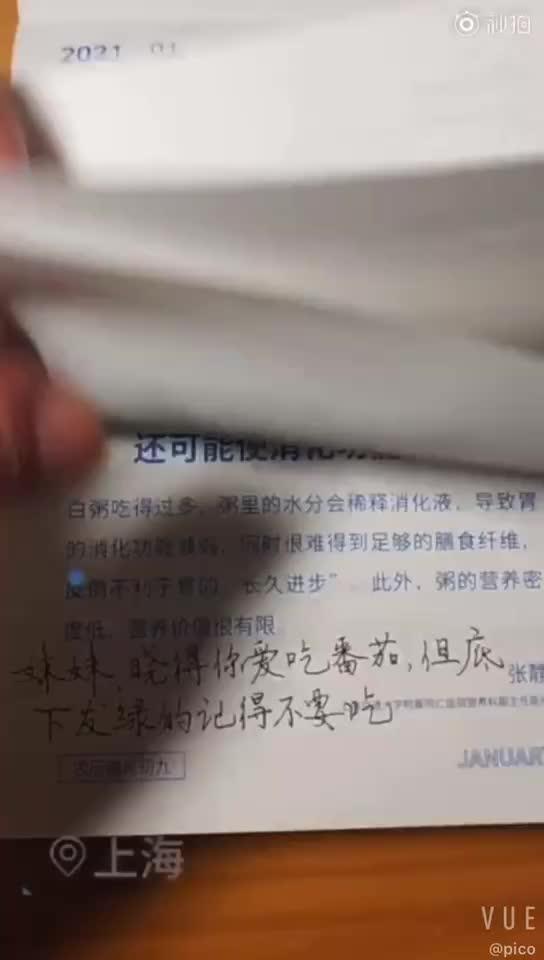 秒拍
2021 01
还可能使消化功能
白粥吃得过多，粥里的水分会稀释消化液，导致胃
的消化功能减弱，同时很难得到足够的膳食纤维，
反倒不利于胃的“长久进步”。此外，粥的营养密
度低，营养价值很有限
妹妹，晓得你爱吃番茄，但底
张静
下发绿的记得不要吃
JANUAR
上海
VUE
@pico